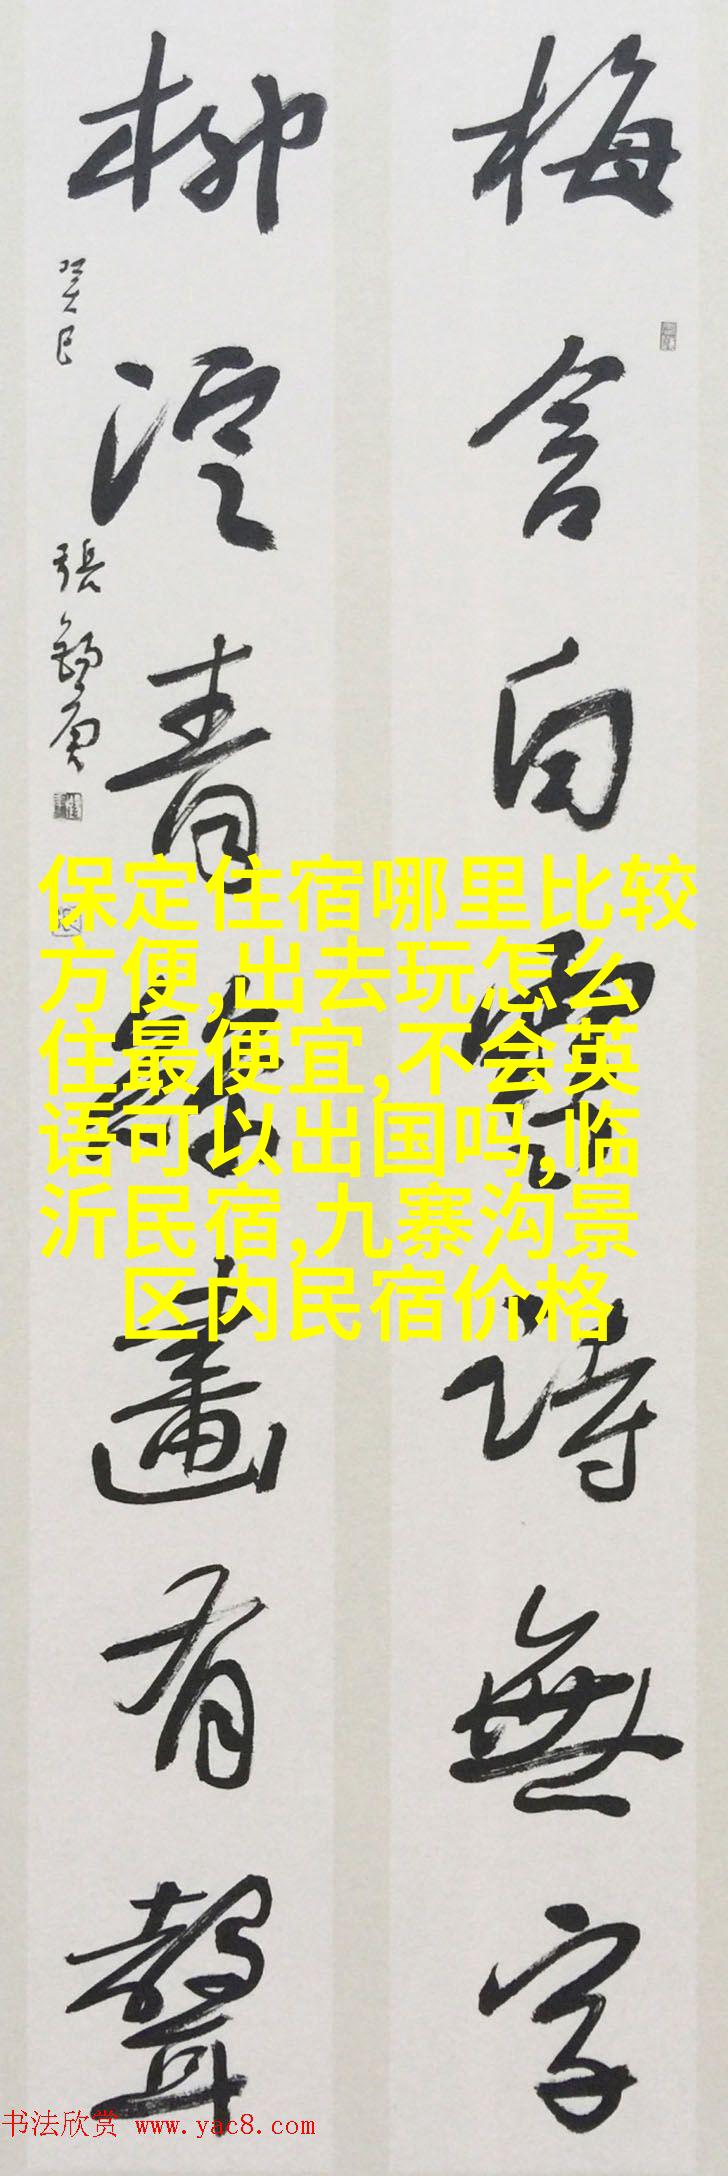 梅含白雪詩無字
柳泛青絲畫有聲
癸巳
張錦庚
保定住宿哪里比较
方便,出去玩怎么
住最便宜,不会英
语可以出国吗,临
沂民宿,九寨沟景
区内民宿价格
书法欣赏 www.yac8.com